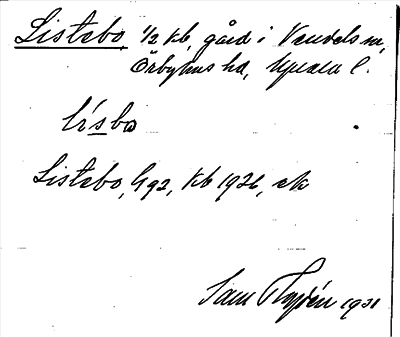 Listebo, 1/2 kb, gård i Vendels sn,
Örbyhus hd, Uppsala l.
li´sbo
Listebo, G 92, kb 1926, ek
Sam 1931